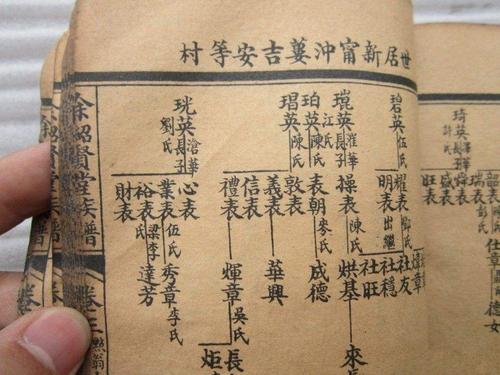 世居新甯沖蔞吉安等村
盛表
旺表
德女
碧英 伍氏
耀表
明表 出繼
社友
社穩
社旺
琨英 長子 江氏
操表 陳氏
烘基
來
珀英 陳氏
表朝 麥氏
成德
琩英 陳氏
敦表
義表
華興
信表
禮表
煇章 吳氏
長
炬
珖英 長子 滄華 劉氏
心表
業表 伍氏
秀章 李氏
裕表 梁李氏
達芳
財表
余紹賢堂族譜
卷三